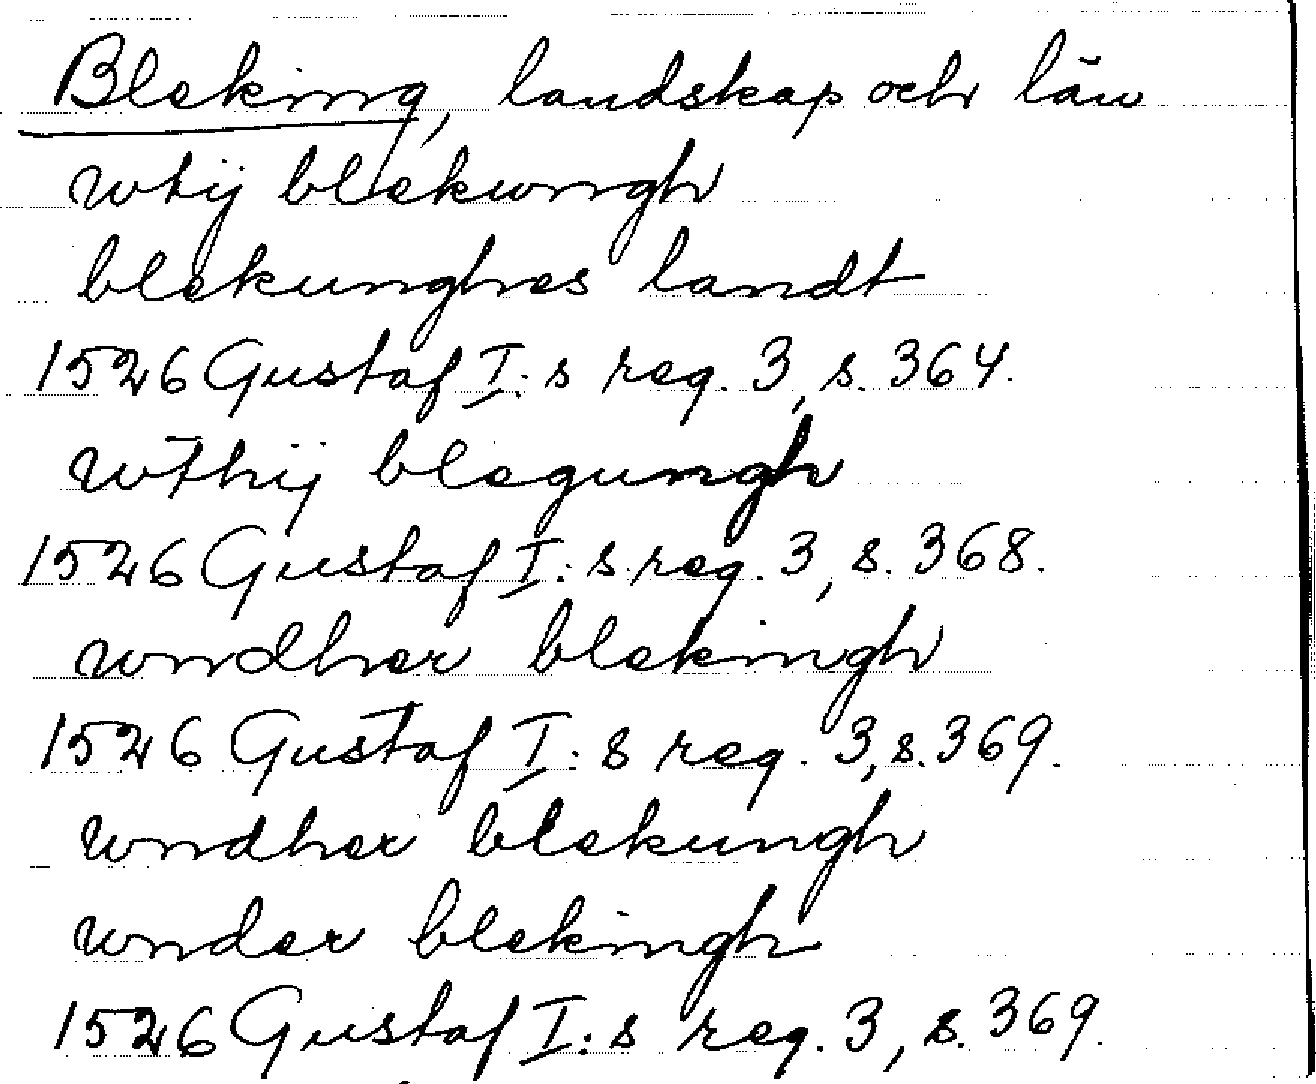 Bleking, landskap och län
wtij blekwngh
blekunghes landt
1526 Gustaf I:s reg. 3, s. 364.
wthij blegungh
1526 Gustaf I:s reg. 3, s. 368.
wndher blekingh
1526 Gustaf I:s reg. 3, s. 369.
wndher blekungh
wnder blekingh
1526 Gustaf I:s reg. 3, s. 369.